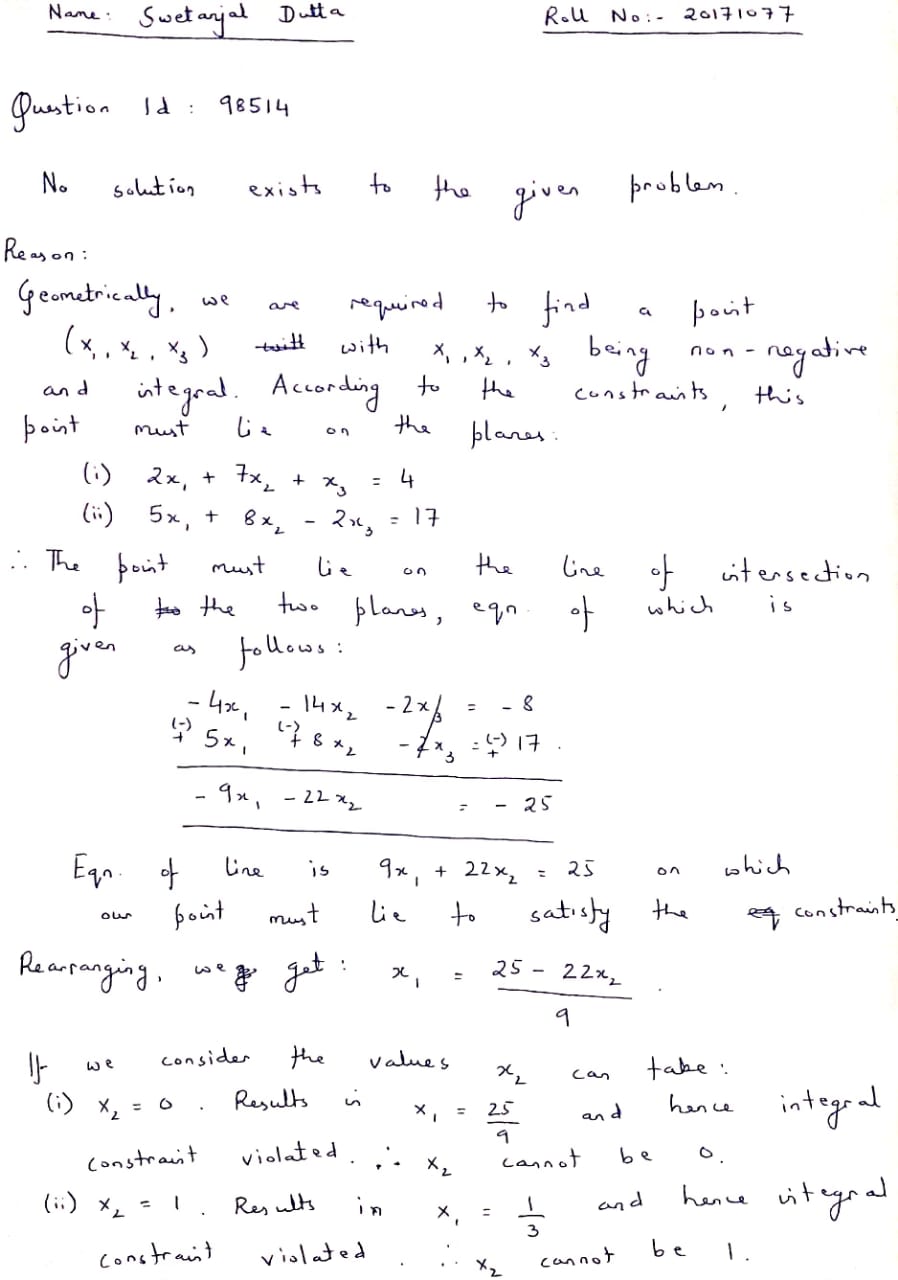 Name: Swetanjal Dutta Roll No:- 20171077
Question Id : 98514
No solution exists to the given problem.
Reason:
Geometrically, we are required to find a point
(x₁, x₂, x₃) with x₁, x₂, x₃ being non-negative
and integral. According to the constraints, this
point must lie on the planes:
(i) 2x₁ + 7x₂ + x₃ = 4
(ii) 5x₁ + 8x₂ - 2x₃ = 17
∴ The point must lie on the line of intersection
of the two planes, eqn. of which is
given as follows:
- 4x₁ - 14x₂ - 2x₃ = - 8
(-) + 5x₁ (-) + 8x₂ - 2x₃ = (-) + 17.
- 9x₁ - 22x₂ = - 25
Eqn. of line is 9x₁ + 22x₂ = 25 on which
our point must lie to satisfy the constraints.
Rearranging, we get: x₁ = (25 - 22x₂)/9.
If we consider the values x₂ can take:
(i) x₂ = 0. Results in x₁ = 25/9 and hence integral
constraint violated. ∴ x₂ cannot be 0.
(ii) x₂ = 1. Results in x₁ = 1/3 and hence integral
constraint violated. ∴ x₂ cannot be 1.